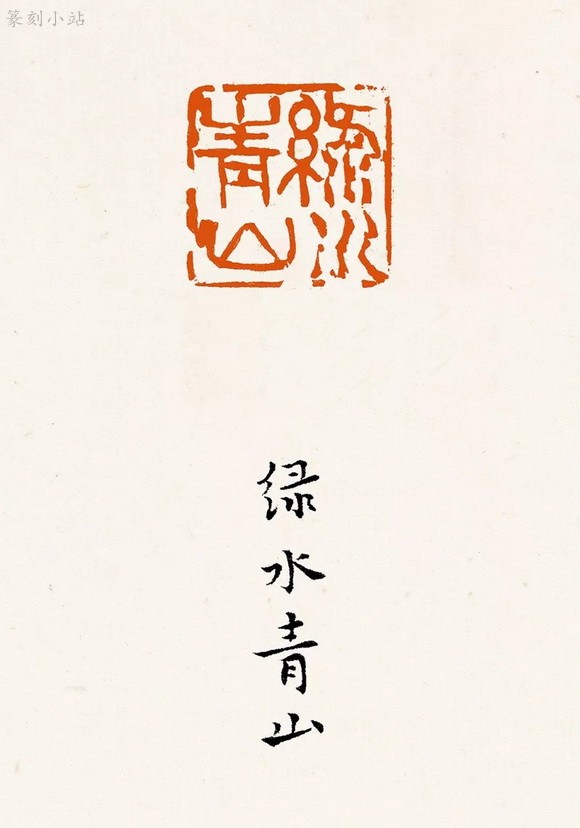 篆刻小站
綠水青山
绿水青山